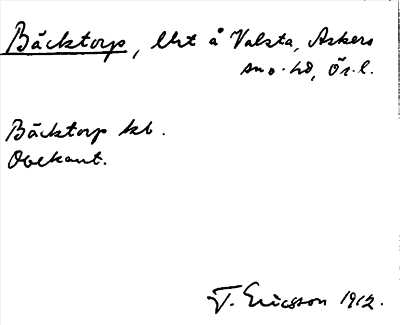 Bäcktorp, lht å Valsta, Askers
sn o. hd, Ör. l.
Bäcktorp kb.
Obekant.
T. Ericsson 1912.